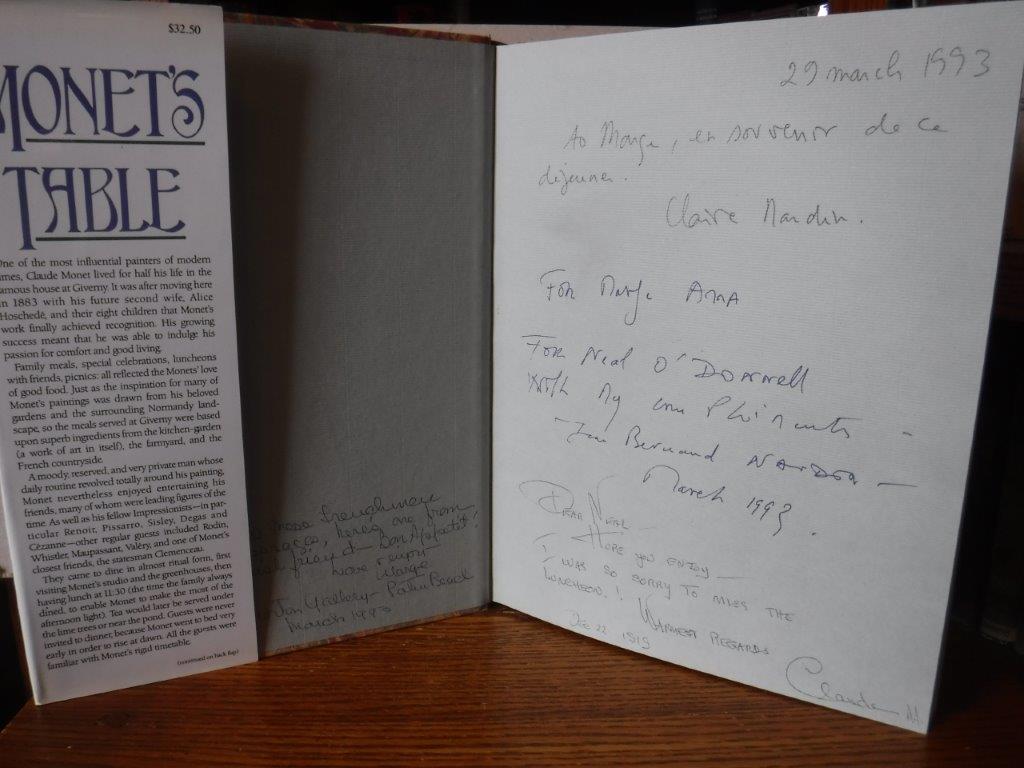 $32.50
MONET'S
TABLE
One of the most influential painters of modern
times, Claude Monet lived for half his life in the
famous house at Giverny. It was after moving here
in 1883 with his future second wife, Alice
Hoschedé, and their eight children that Monet's
work finally achieved recognition. His growing
success meant that he was able to indulge his
passion for comfort and good living.
Family meals, special celebrations, luncheons
with friends, picnics: all reflected the Monets' love
of good food. Just as the inspiration for many of
Monet's paintings was drawn from his beloved
gardens and the surrounding Normandy land-
scape, so the meals served at Giverny were based
upon superb ingredients from the kitchen-garden
(a work of art in itself), the farmyard, and the
French countryside.
A moody, reserved, and very private man whose
daily routine revolved totally around his painting,
Monet nevertheless enjoyed entertaining his
friends, many of whom were leading figures of the
time. As well as his fellow Impressionists—in par-
ticular Renoir, Pissarro, Sisley, Degas and
Cézanne—other regular guests included Rodin,
Whistler, Maupassant, Valéry, and one of Monet's
closest friends, the statesman Clemenceau.
They came to dine in almost ritual form, first
visiting Monet's studio and the greenhouses, then
having lunch at 11:30 (the time the family always
dined, to enable Monet to make the most of the
afternoon light). Tea would later be served under
the lime trees or near the pond. Guests were never
invited to dinner, because Monet went to bed very
early in order to rise at dawn. All the guests were
familiar with Monet's rigid timetable.
(continued on back flap)
here's one from
Bon Appetit!
Love
Marge
Gallery - Palm Beach
March 1993
29 march 1993
To Marge, en souvenir de ce
déjeuner.
Claire
For Marge
For Neal O'Donnell
With My compliments -
Jean Bernard -
March 1993.
Dear Neal -
Hope you enjoy -
I was so sorry to miss the
luncheon! Warmest Regards
Dec 22 1919
Claude M.